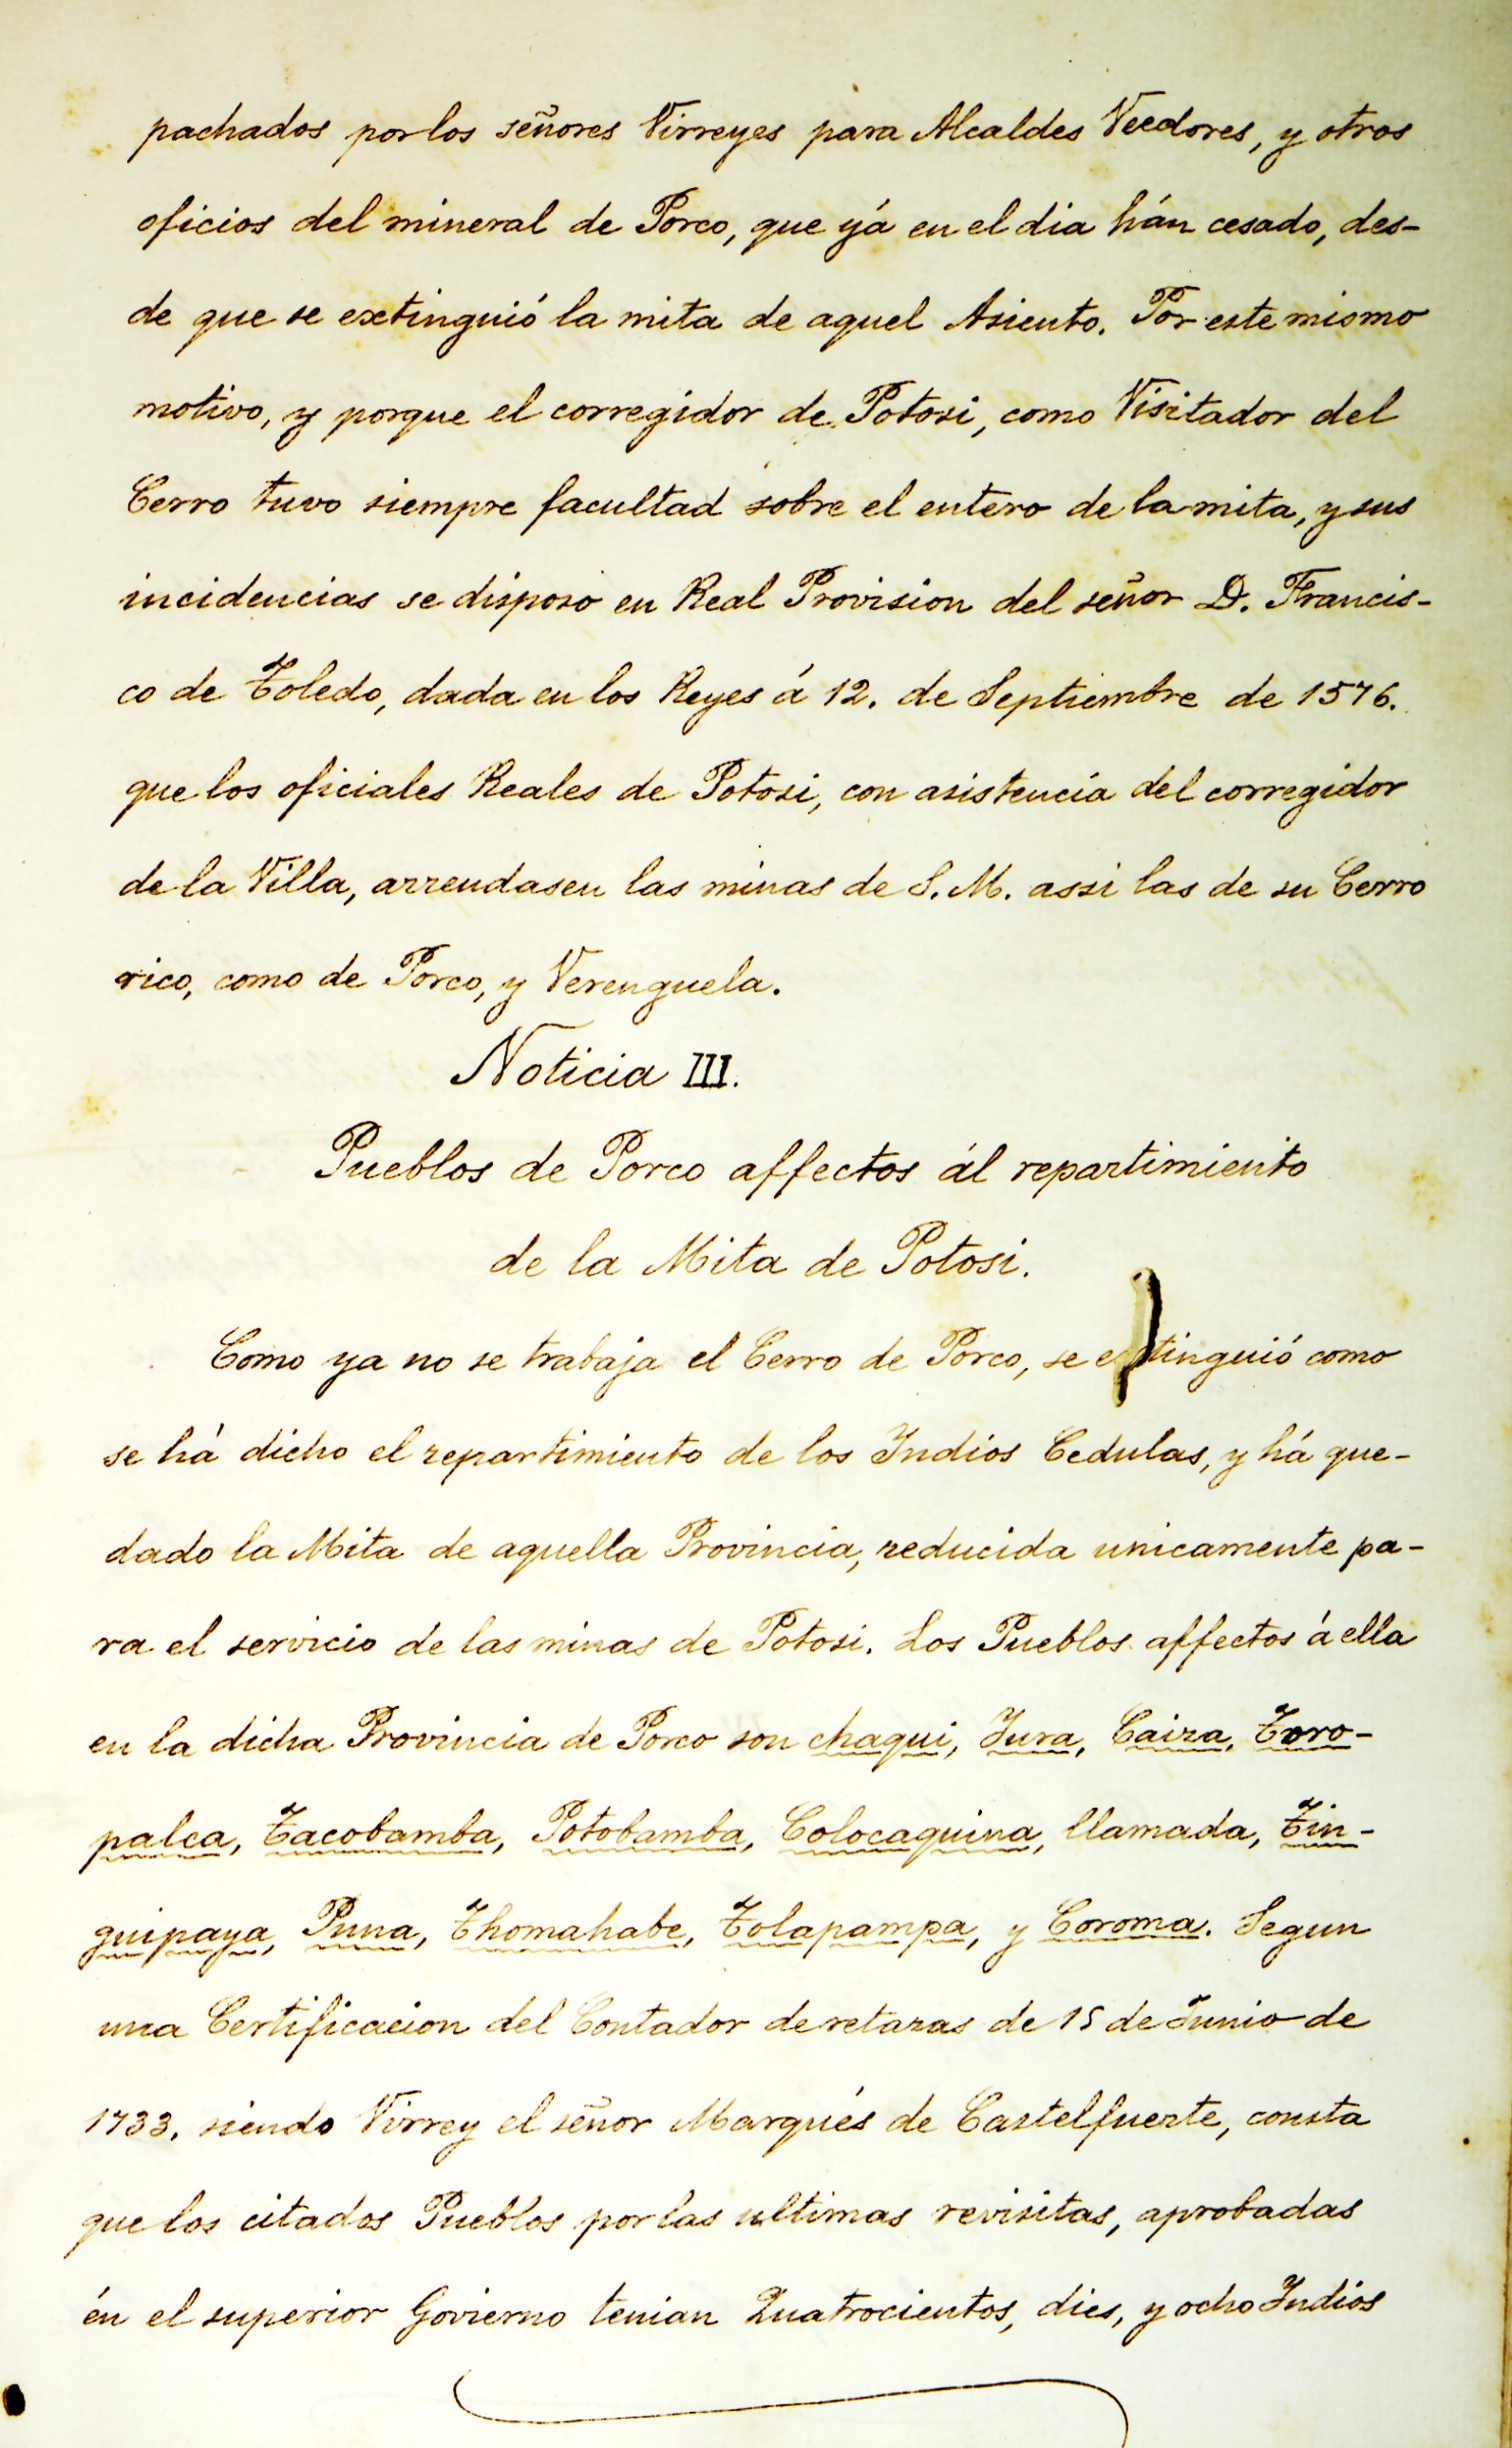 pachados por los señores Virreyes para Alcaldes Veedores, y otros
oficios del mineral de Porco, que yá en el dia hán cesado, des-
de que se extinguió la mita de aquel Asiento. Por este mismo
motivo, y porque el corregidor de Potosi, como Visitador del
Cerro tuvo siempre facultad sobre el entero de la mita, y sus
incidencias se disposo en Real Provision del señor D. Francis-
co de Toledo, dada en los Reyes á 12. de Septiembre de 1576.
que los oficiales Reales de Potosi, con asistencia del corregidor
de la Villa, arrendasen las minas de S. M. assi las de su Cerro
rico, como de Porco, y Verenguela.
Noticia III.
Pueblos de Porco affectos ál repartimiento
de la Mita de Potosi.
Como ya no se trabaja el Cerro de Porco, se extinguió como
se há dicho el repartimiento de los Indios Cedulas, y há que-
dado la Mita de aquella Provincia, reducida unicamente pa-
ra el servicio de las minas de Potosi. Los Pueblos affectos á ella
en la dicha Provincia de Porco son chaqui, Yura, Caiza, Toro-
palca, Tacobamba, Potobamba, Colocaquina, llamada, Tin-
guipaya, Puna, Thomahabe, Tolapampa, y Coroma. Segun
una Certificacion del Contador de retazas de 15 de Junio de
1733. siendo Virrey el señor Marqués de Castelfuerte, consta
que los citados Pueblos por las ultimas revisitas, aprobadas
én el superior Govierno tenian Quatrocientos, dies, y ocho Indios